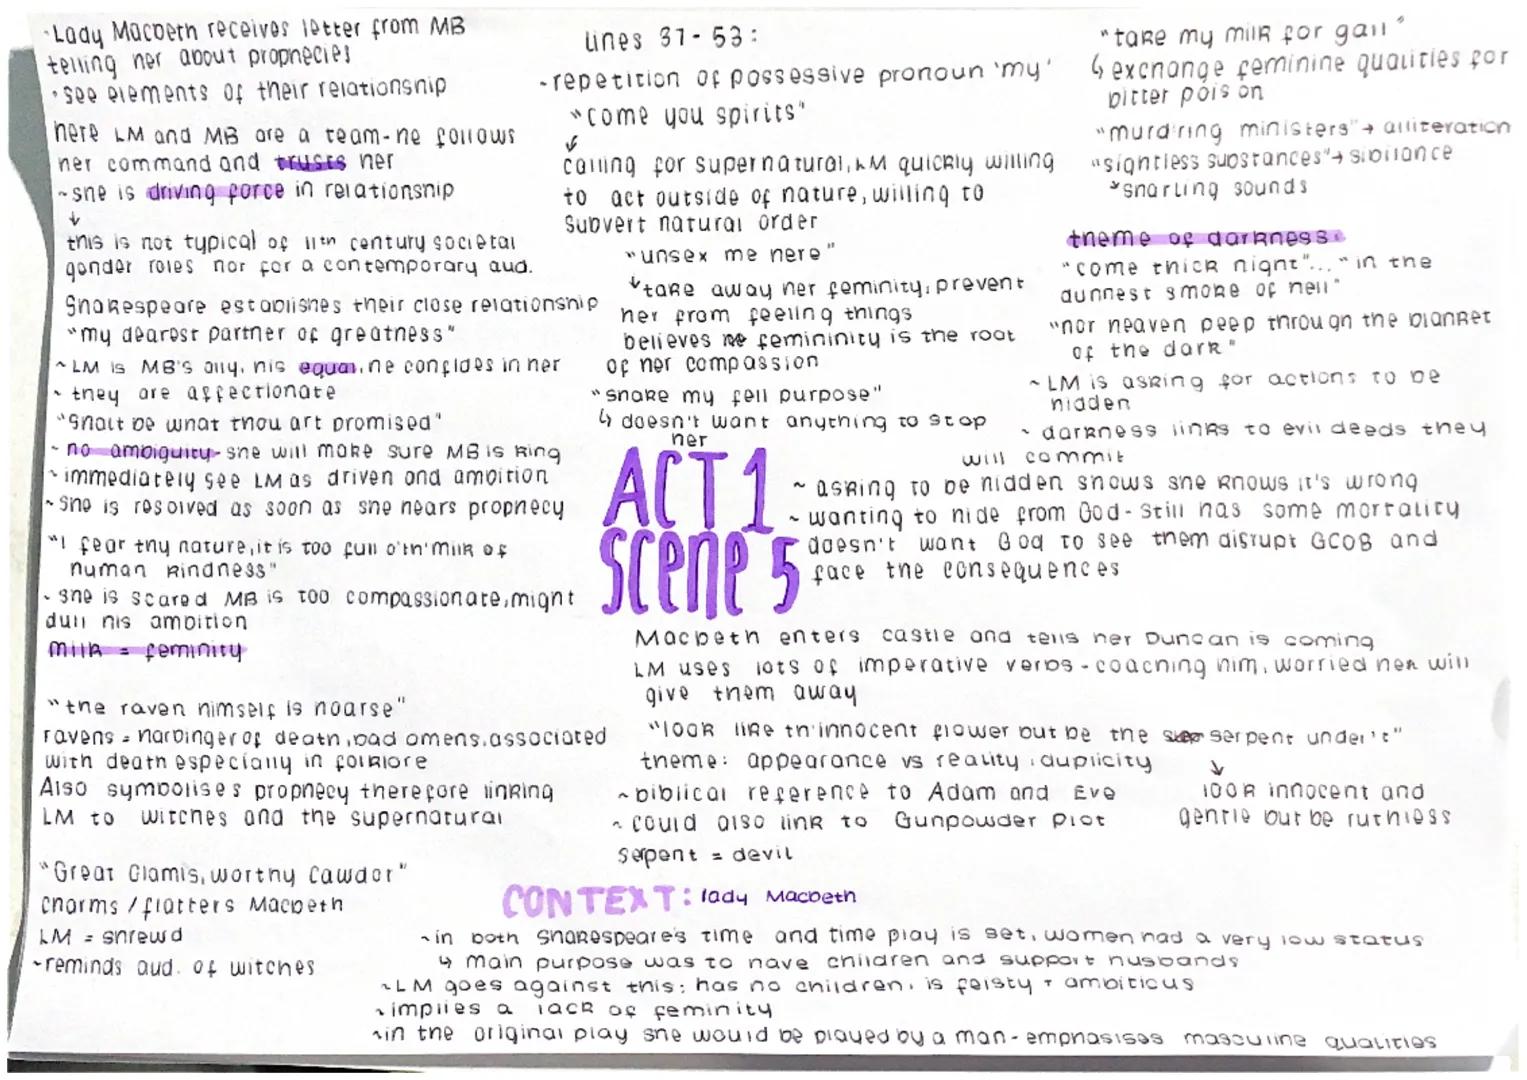 ·Lady Macbeth receives letter from MB
telling her about prophecies
·see elements of their relationship
here LM and MB are a team-he follows
her command and trusts her
~she is driving force in relationship
↓
this is not typical of 11th century societal
gender roles nor for a contemporary aud.
Shakespeare establishes their close relationship
"my dearest partner of greatness"
~LM is MB's ally, his equal, he confides in her
~ they are affectionate
"shalt be what thou art promised"
~ no ambiguity-she will make sure MB is King
~immediately see LM as driven and ambition
~she is resolved as soon as she hears prophecy
"I fear thy nature, it is too full o'th' milk of
human kindness"
~ she is scared MB is too compassionate, might
dull his ambition
milk = feminity
"the raven himself is hoarse"
ravens = harbinger of death, bad omens, associated
with death especially in folklore
Also symbolises prophecy therefore linking
LM to witches and the supernatural
"Great Glamis, worthy Cawdor"
charms / flatters Macbeth
LM = shrewd
~reminds aud. of witches
lines 37-53:
~repetition of possessive pronoun 'my'
"come you spirits"
↓
calling for supernatural, LM quickly willing
to act outside of nature, willing to
subvert natural order
"unsex me here"
↳take away her feminity, prevent
her from feeling things
believes femininity is the root
of her compassion
"shake my fell purpose"
↳ doesn't want anything to stop
her
"take my milk for gall"
↳ exchange feminine qualities for
bitter poison
"murd'ring ministers"→ alliteration
"sightless substances"→ sibilance
↳snarling sounds
theme of darkness:
"come thick night"... "in the
dunnest smoke of hell"
"nor heaven peep through the blanket
of the dark"
~LM is asking for actions to be
hidden
~ darkness links to evil deeds they
will commit
~ asking to be hidden shows she knows it's wrong
~ wanting to hide from God-still has some mortality
doesn't want God to see them disrupt GCOB and
face the consequences
ACT 1
Scene 5
Macbeth enters castle and tells her Duncan is coming
LM uses lots of imperative verbs-coaching him, worried he will
give them away
"look like th'innocent flower but be the serpent under't"
theme: appearance vs reality, duplicity
↓
look innocent and
gentle but be ruthless
~biblical reference to Adam and Eve
~ could also link to Gunpowder Plot
serpent = devil
CONTEXT: lady Macbeth
~in both Shakespeare's time and time play is set, women had a very low status
↳ main purpose was to have children and support husbands
~LM goes against this: has no children, is feisty + ambitious
~implies a lack of feminity
~in the original play she would be played by a man-emphasises masculine qualities